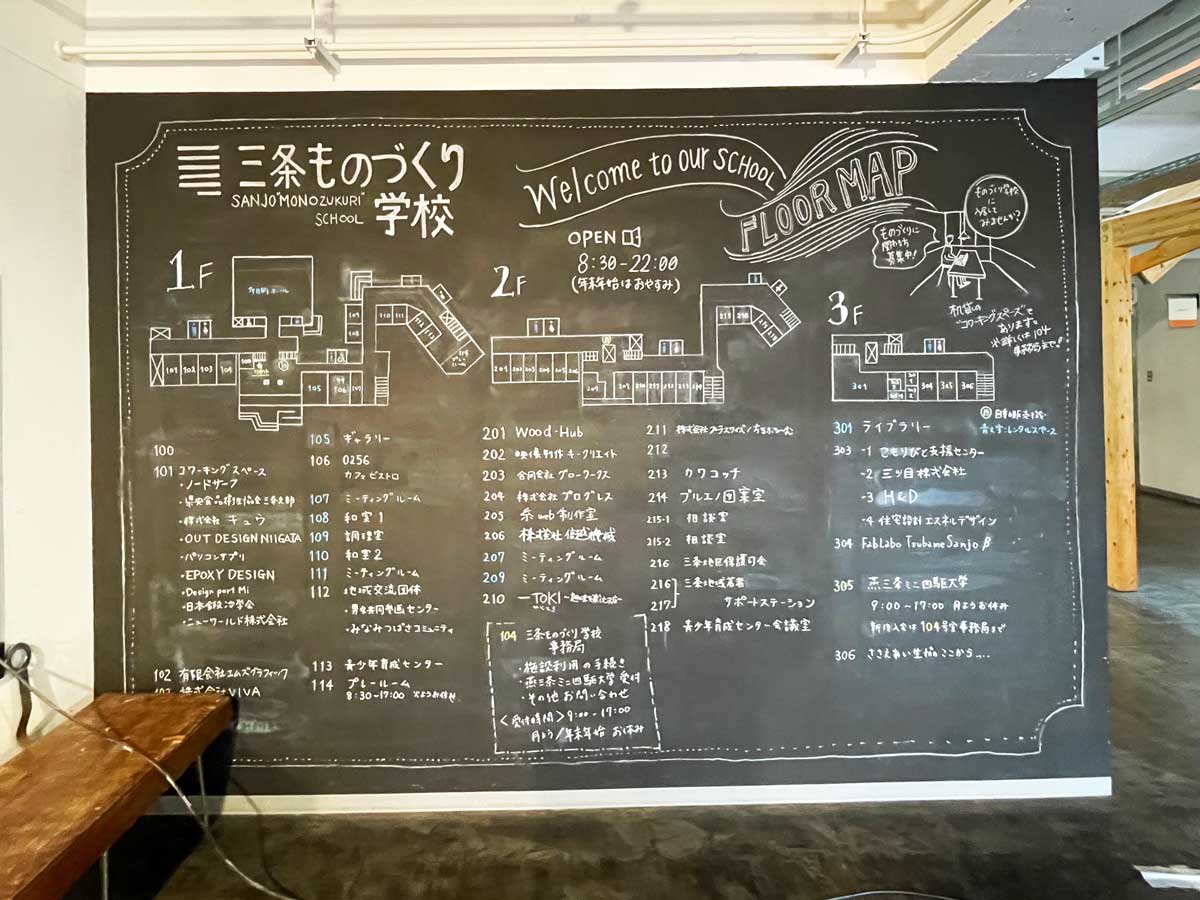 三条ものづくり
学校
SANJO MONOZUKURI
SCHOOL
Welcome to our SCHOOL
FLOOR MAP
OPEN
8:30-22:00
(年末年始はおやすみ)
ものづくり学校
に
入居して
みませんか?
ものづくりに
関わる方
募集中!
机貸の
"コワーキングスペース"で
あります。
詳しくは104
事務局まで!
1F
101 102 103 104
105 106 107
108
109
110 111
2F
201 202 203 204 205 206
3F
301
304 305 306
青文字:レンタルスペース
100
101 コワーキングスペース
・ノードサーフ
・県央食品衛生協会三条支部
・株式会社 キュウ
・OUT DESIGN NIIGATA
・パソコンサプリ
・EPOXY DESIGN
・Design port Mi
・日本鍛冶学会
・ニューワールド株式会社
102 有限会社エムズグラフィック
103 株式会社VIVA
105 ギャラリー
106 0256
カフェビストロ
107 ミーティングルーム
108 和室1
109 調理室
110 和室2
111 ミーティングルーム
112 地域交流団体
・男女共同参画センター
・みなみつばさコミュニティ
113 青少年育成センター
114 プレールーム
8:30~17:00
201 Wood-Hub
202 映像制作 キークリエイト
203 合同会社グローワークス
204 株式会社 プログレス
205 糸web制作室
206 株式会社 信越機械
207 ミーティングルーム
209 ミーティングルーム
210 TOKI
104 三条ものづくり学校
事務局
・施設利用の手続き
・燕三条ミニ四駆大学 受付
・その他 お問い合わせ
<受付時間> 9:00-17:00
月よう/年末年始 お休み
211 株式会社プラスワイズ
212
213 クワコッチ
214 ブルエノ図案室
215-1 相談室
215-2 相談室
216 三条地区保護司会
216 三条地域若者
217 サポートステーション
218 青少年育成センター会議室
301 ライブラリー
303 -1 こもりびと支援センター
-2 三ツ目株式会社
-3 H&D
-4 住宅設計エスネルデザイン
304 FabLabo TsubameSanjo β
305 燕三条ミニ四駆大学
9:00~17:00 月ようお休み
新規入会は104号室事務局まで
306 ささえあい生協 ここから....